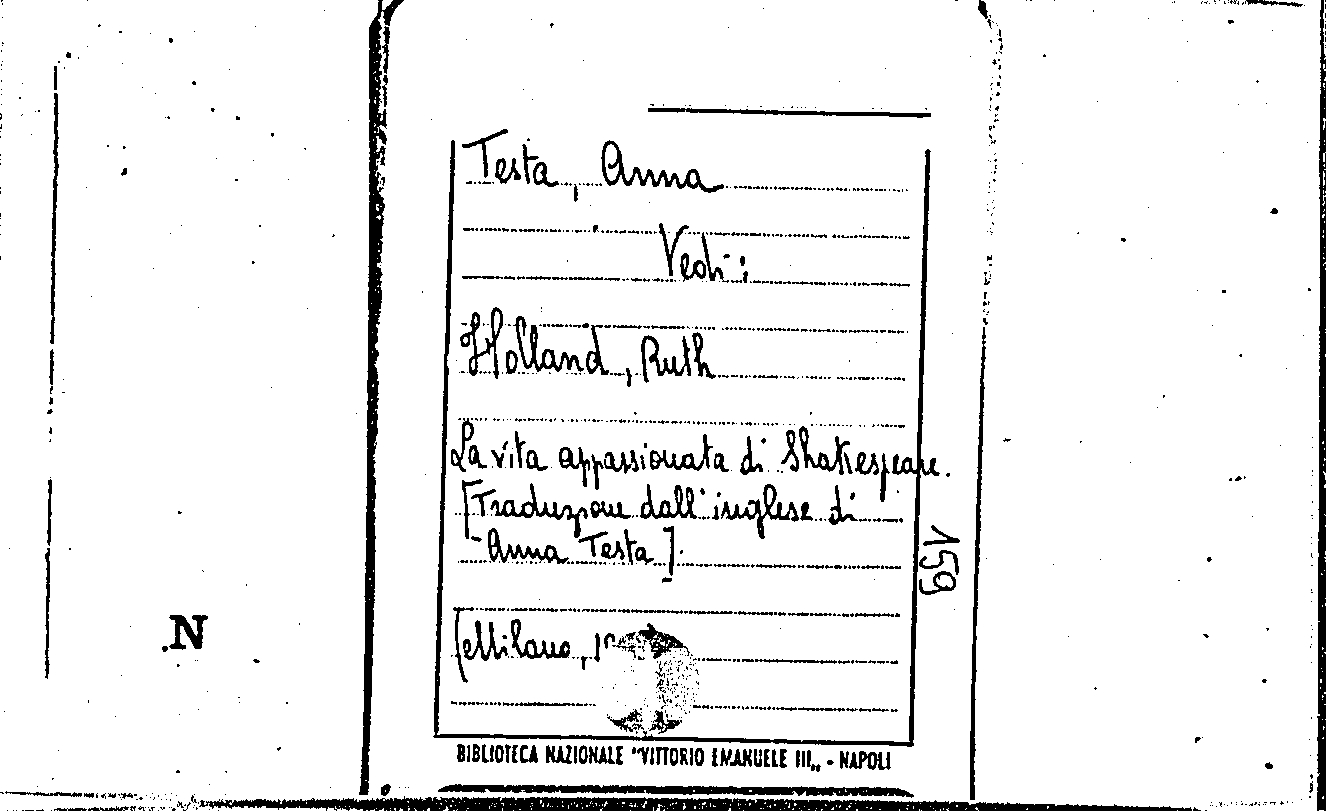 Testa, Anna
Vedi:
Holland, Ruth
La vita appassionata di Shakespeare.
[Traduzione dall'inglese di
Anna Testa].
(Milano,
159
N
BIBLIOTECA NAZIONALE "VITTORIO EMANUELE III„ - NAPOLI